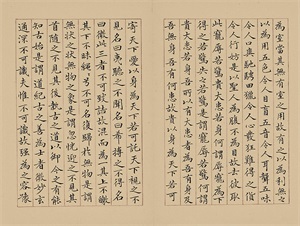 為室當其無有室之用故有之以為利無之
以為用五色令人目盲五音令人耳聾五味
令人口爽馳騁田獵令人心發狂難得之貨
令人行妨是以聖人為腹不為目故去彼取
此寵辱若驚貴大患若身何謂寵辱為下
得之若驚失之若驚是謂寵辱若驚何謂
貴大患若身吾所以有大患者為吾有身及
吾無身吾有何患故貴以身為天下若可
寄天下愛以身為天下若可託天下視之不
見名曰夷聽之不聞名曰希搏之不得名
曰微此三者不可致詰故混而為一其上不皦
其下不昧繩繩不可名復歸於無物是謂
無狀之狀無物之象是謂惚恍迎之不見其
首隨之不見其後執古之道以御今之有能
知古始是謂道紀古之善為士者微妙玄
通深不可識夫惟不可識故强為之容豫